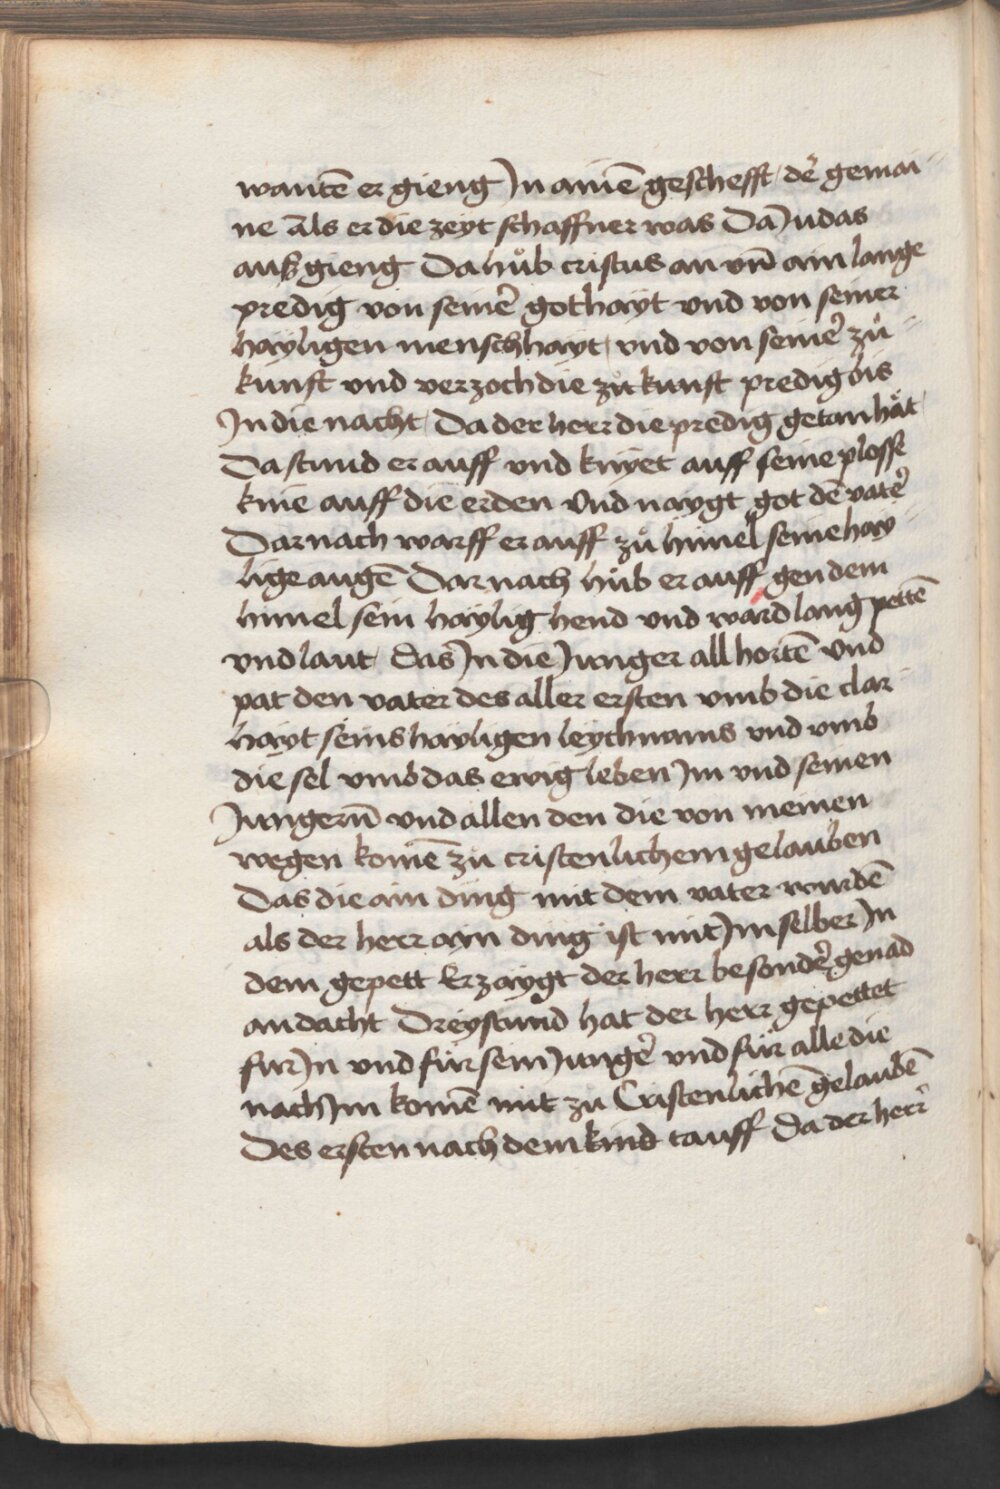 wantē er gieng Jn ainē geschefft der̄ gemai
ne Als er die zeyt schaffner was Da Judas
auß gieng Da hůb cristus an vn̄ ain lange
predig von seiner̄ gothayt vnd von seiner
hayligen menschhayt vnd von seiner̄ zů
kunft vnd verzoch die zůkunft predig bis
Jn die nacht Da der herr die predig getan hät
Da stund er auff vnd knyet auff seine plosse
knie auff die erden Vnd naygt got dē vater̄
Darnach warff er auff zů himel seine hay
lige augē Darnach hůb er auff gen dem
himel sein haylig hend vnd ward lang pettē
vnd laut Das Jn die Junger all hortē Vnd
pat den vater des aller ersten vmb die clar
hayt seins hayligen leychnams vnd vmb
die sel vmb das ewig leben Jm vnd seinen
Jungern̄ vnd allen den die von meinen
wegen komē zu cristenlichem gelauben
Das die ain ding mit dem vater wurdē
als der herr ayn ding ist mit Jm selber Jn
dem gepett Erzaygt der herr besonder̄ genad
andacht Dreystund hat der herr gepettet
fur Jn vnd für sein Junger̄ vnd für alle die
nach Jm komē mit zu Cristenlichē gelaubē
Des ersten nach dem kind tauff Da der herr